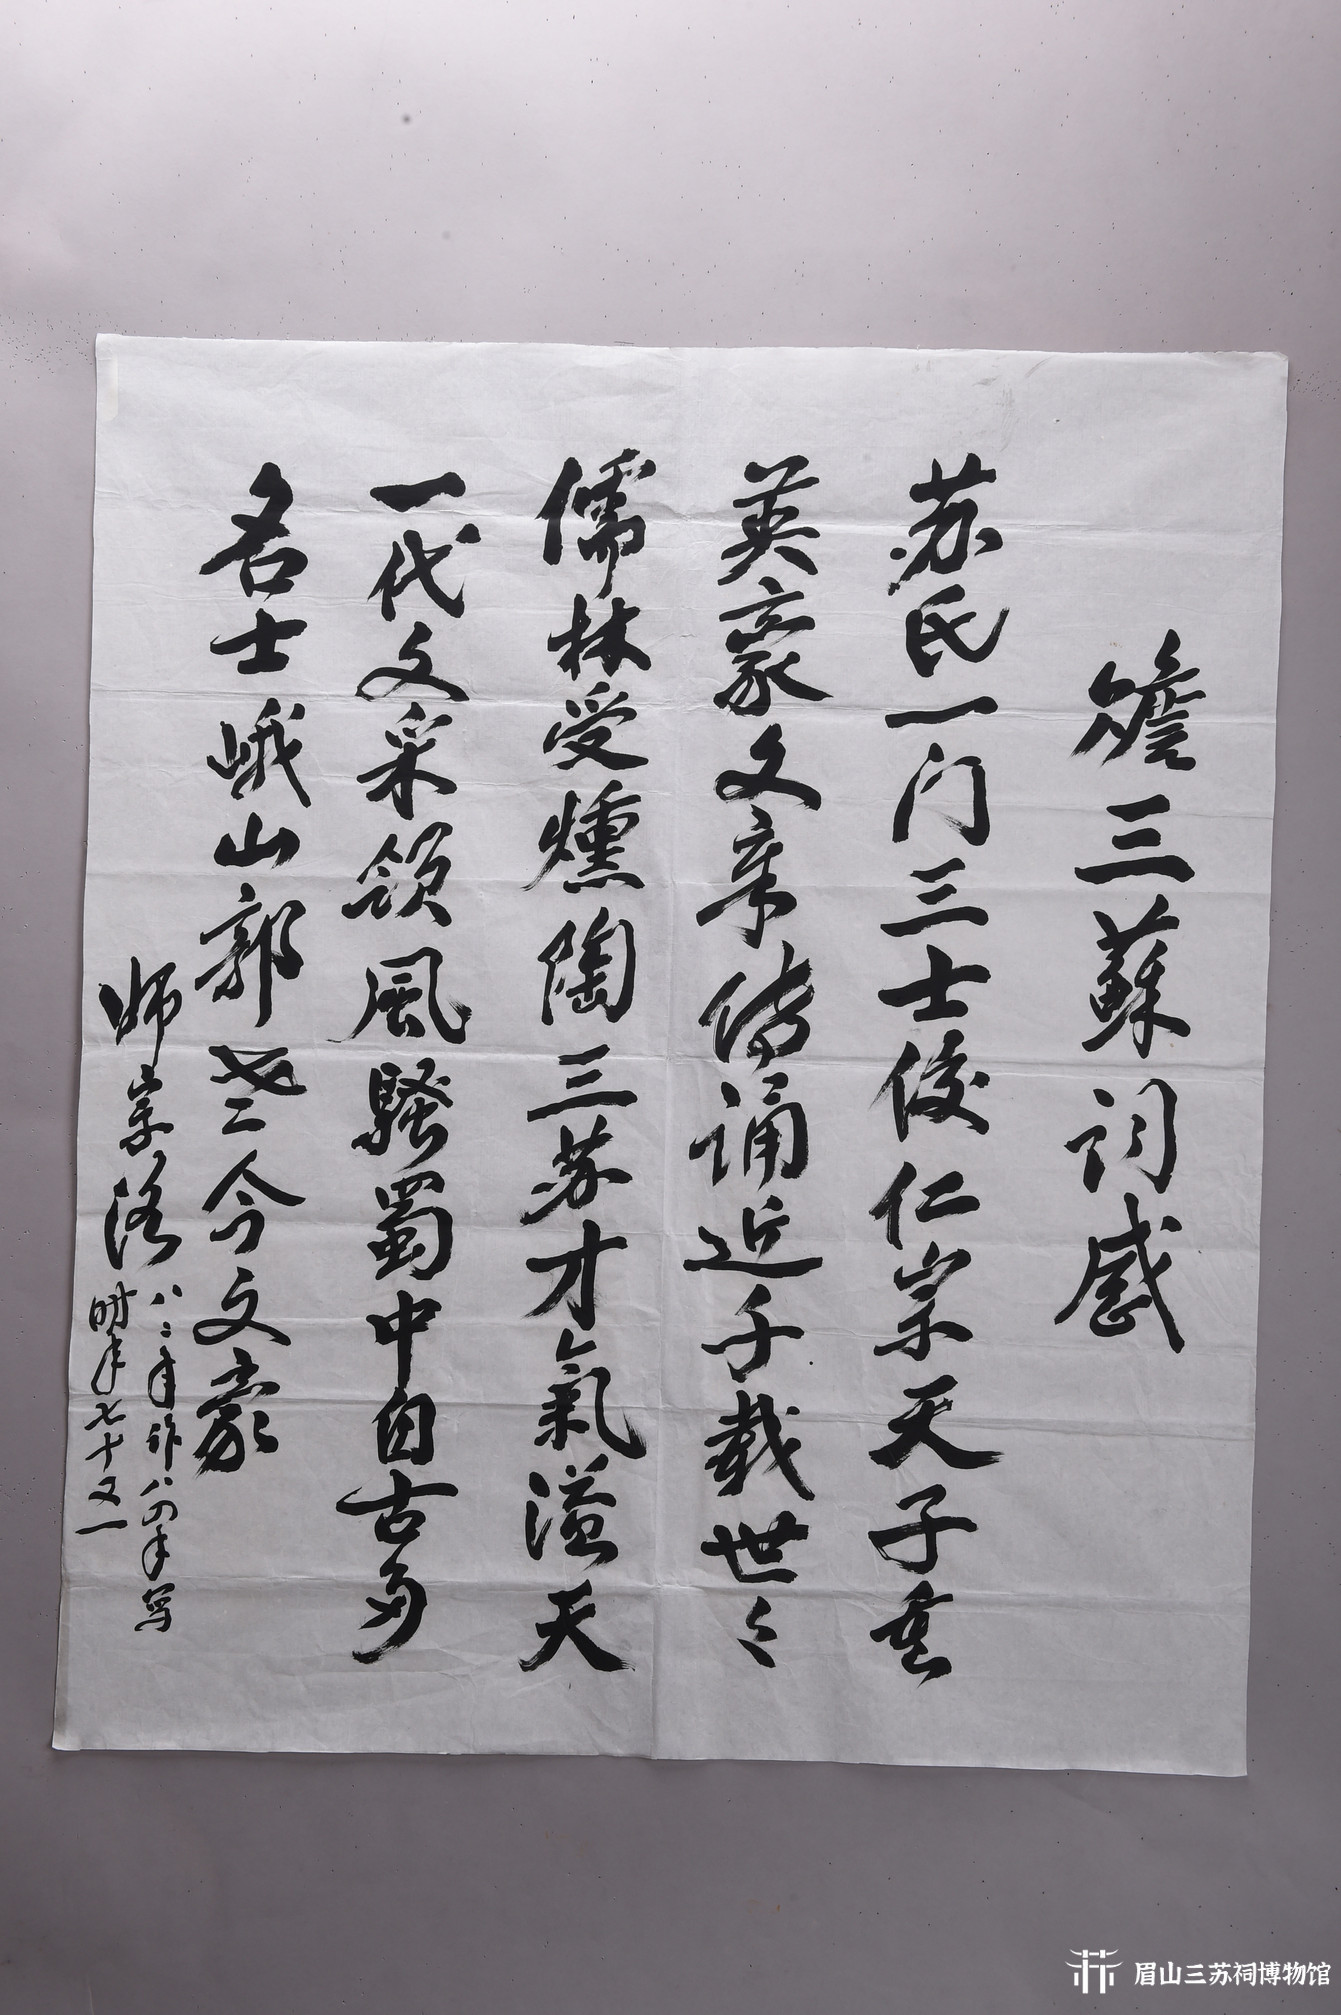 瞻三蘇词感
苏氏一门三士俊仁宗天子重
英豪文章传诵近千载世々
儒林受燻陶三苏才氣溢天
一代文采领風騷蜀中自古多
名士峨山郭老今文豪
师宗洛
八二年作八四年写
时年七十又一
眉山三苏祠博物馆